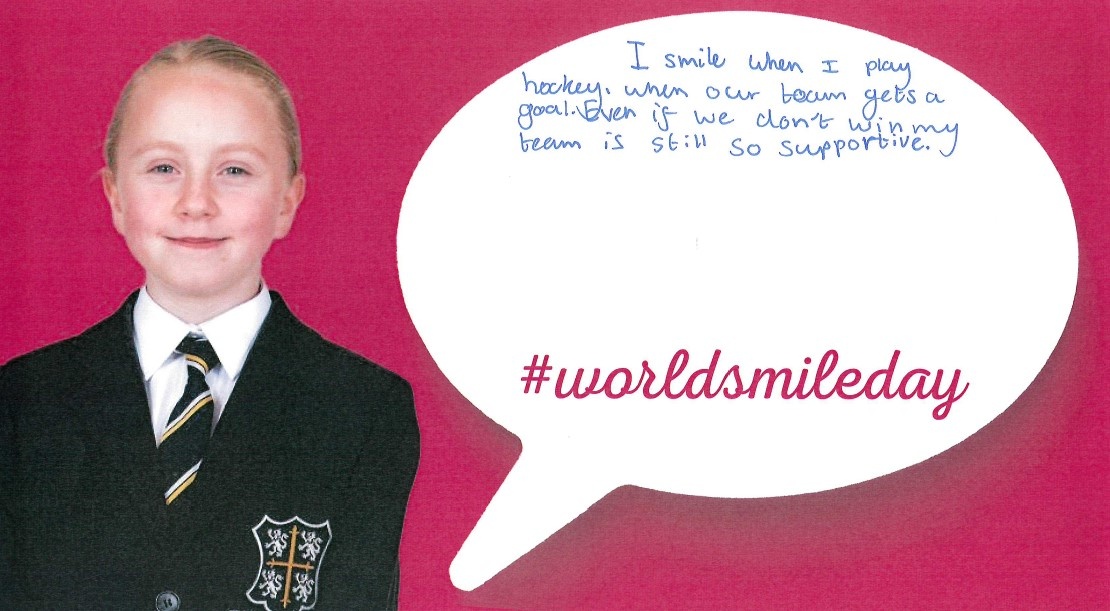 I smile when I play
hockey. when our team gets a
goal. Even if we don't win my
team is still so supportive.
#worldsmileday